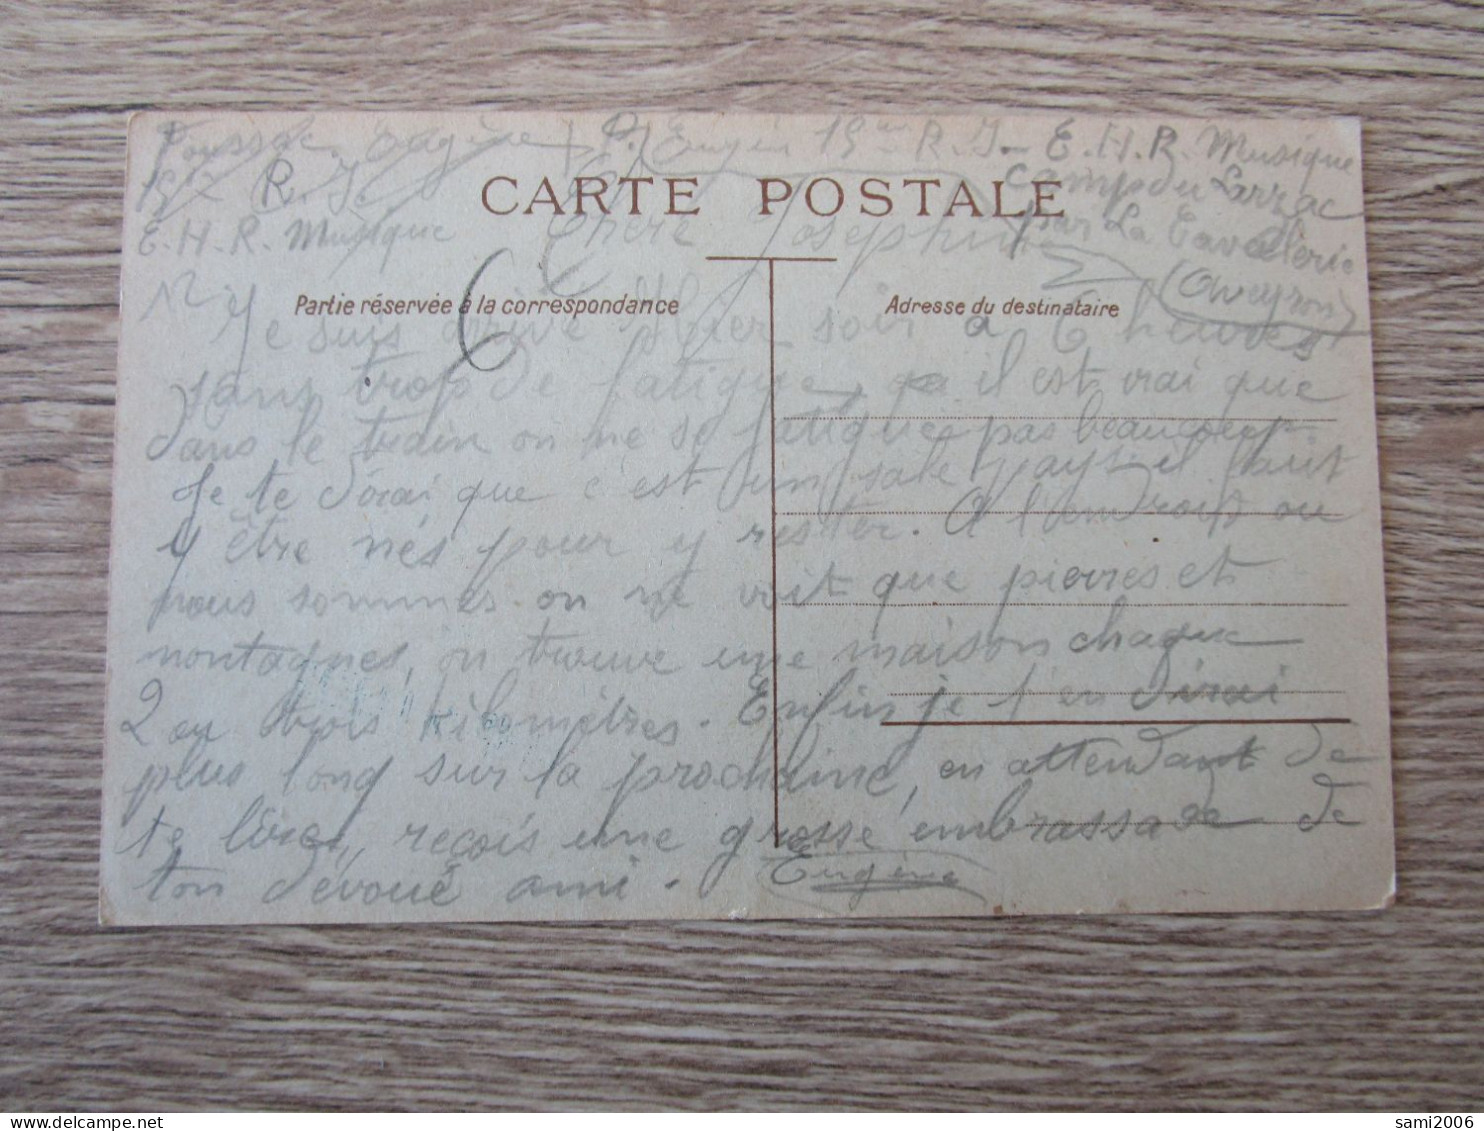 Eugène P. Eugèn 15me R. I. E. H. R. Musique
15me R. I.
Camp du Larzac
CARTE POSTALE
par La Cavalerie
E. H. R. Musique Chère Josephine
(Aveyron)
Partie réservée à la correspondance
Adresse du destinataire
Je suis arrivé Hier soir à 6 heures
sans trop de fatigue, il est vrai que
dans le train on ne se fatigue pas beaucoup.
Je te dirai que c'est un sale pays il faut
y être nés pour y rester. A l'endroit ou
nous sommes on ne voit que pierres et
montagnes, on trouve une maison chaque
2 ou trois kilomètres. Enfin je t'en dirai
plus long sur la prochaine, en attendant de
te lire, reçois une grosse embrassade de
ton dévoué ami.
Eugène
sami2006